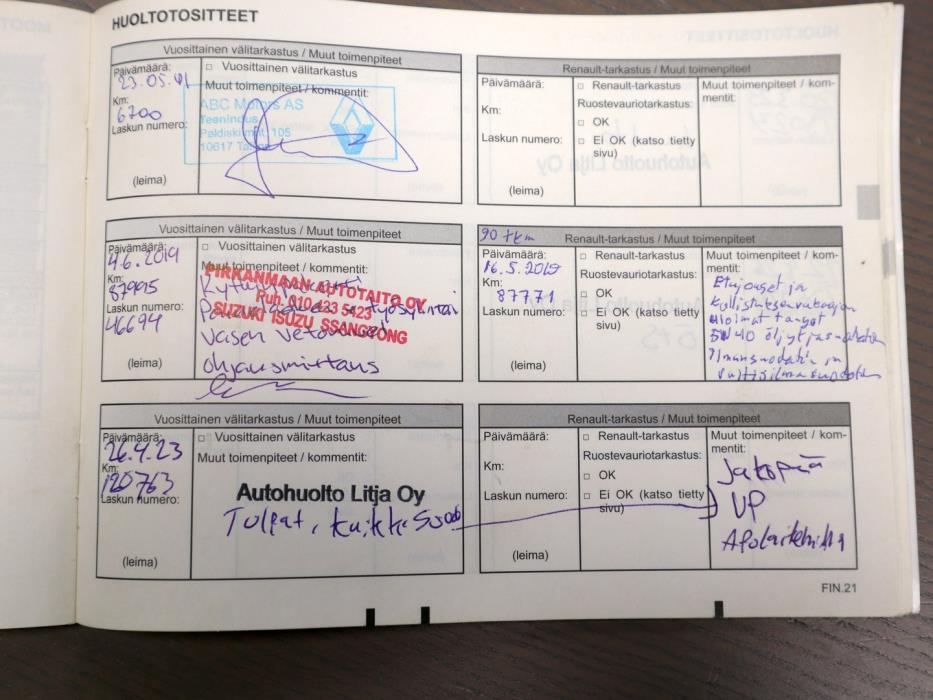 HUOLTOTOSITTEET
Vuosittainen välitarkastus / Muut toimenpiteet
Päivämäärä:
□ Vuosittainen välitarkastus
23.05.
Muut toimenpiteet / kommentit:
Km:
6700
ABC Motors AS
Teenindus
Laskun numero:
Paldiski mnt. 105
10617
(leima)
Renault-tarkastus / Muut toimenpiteet
Päivämäärä:
□ Renault-tarkastus
Muut toimenpiteet / kom-
mentit:
Ruostevauriotarkastus:
Km:
□ OK
Laskun numero:
□ Ei OK (katso tietty
sivu)
(leima)
Vuosittainen välitarkastus / Muut toimenpiteet
Päivämäärä:
□ Vuosittainen välitarkastus
4.6.2019
Muut toimenpiteet / kommentit:
Km:
87995
PIRKANMAAN AUTOTAITO OY
Puh. 010 423 5423
SUZUKI ISUZU SSANGYONG
Laskun numero:
46694
Vasen
ohjausmittaus
(leima)
90 tkm
Renault-tarkastus / Muut toimenpiteet
Päivämäärä:
□ Renault-tarkastus
Muut toimenpiteet / kom-
mentit:
16.5.2019
Ruostevauriotarkastus:
Km:
87771
□ OK
Laskun numero:
□ Ei OK (katso tietty
sivu)
Etujouset ja
tangot
5W40 öljyt
(leima)
Vuosittainen välitarkastus / Muut toimenpiteet
Päivämäärä:
□ Vuosittainen välitarkastus
26.4.23
Muut toimenpiteet / kommentit:
Km:
120763
Laskun numero:
Autohuolto Litja Oy
Tulpat, kaikki
(leima)
Renault-tarkastus / Muut toimenpiteet
Päivämäärä:
□ Renault-tarkastus
Muut toimenpiteet / kom-
mentit:
Ruostevauriotarkastus:
Km:
□ OK
Laskun numero:
□ Ei OK (katso tietty
sivu)
Jakopää
VP
Apulaitehihna
(leima)
FIN.21